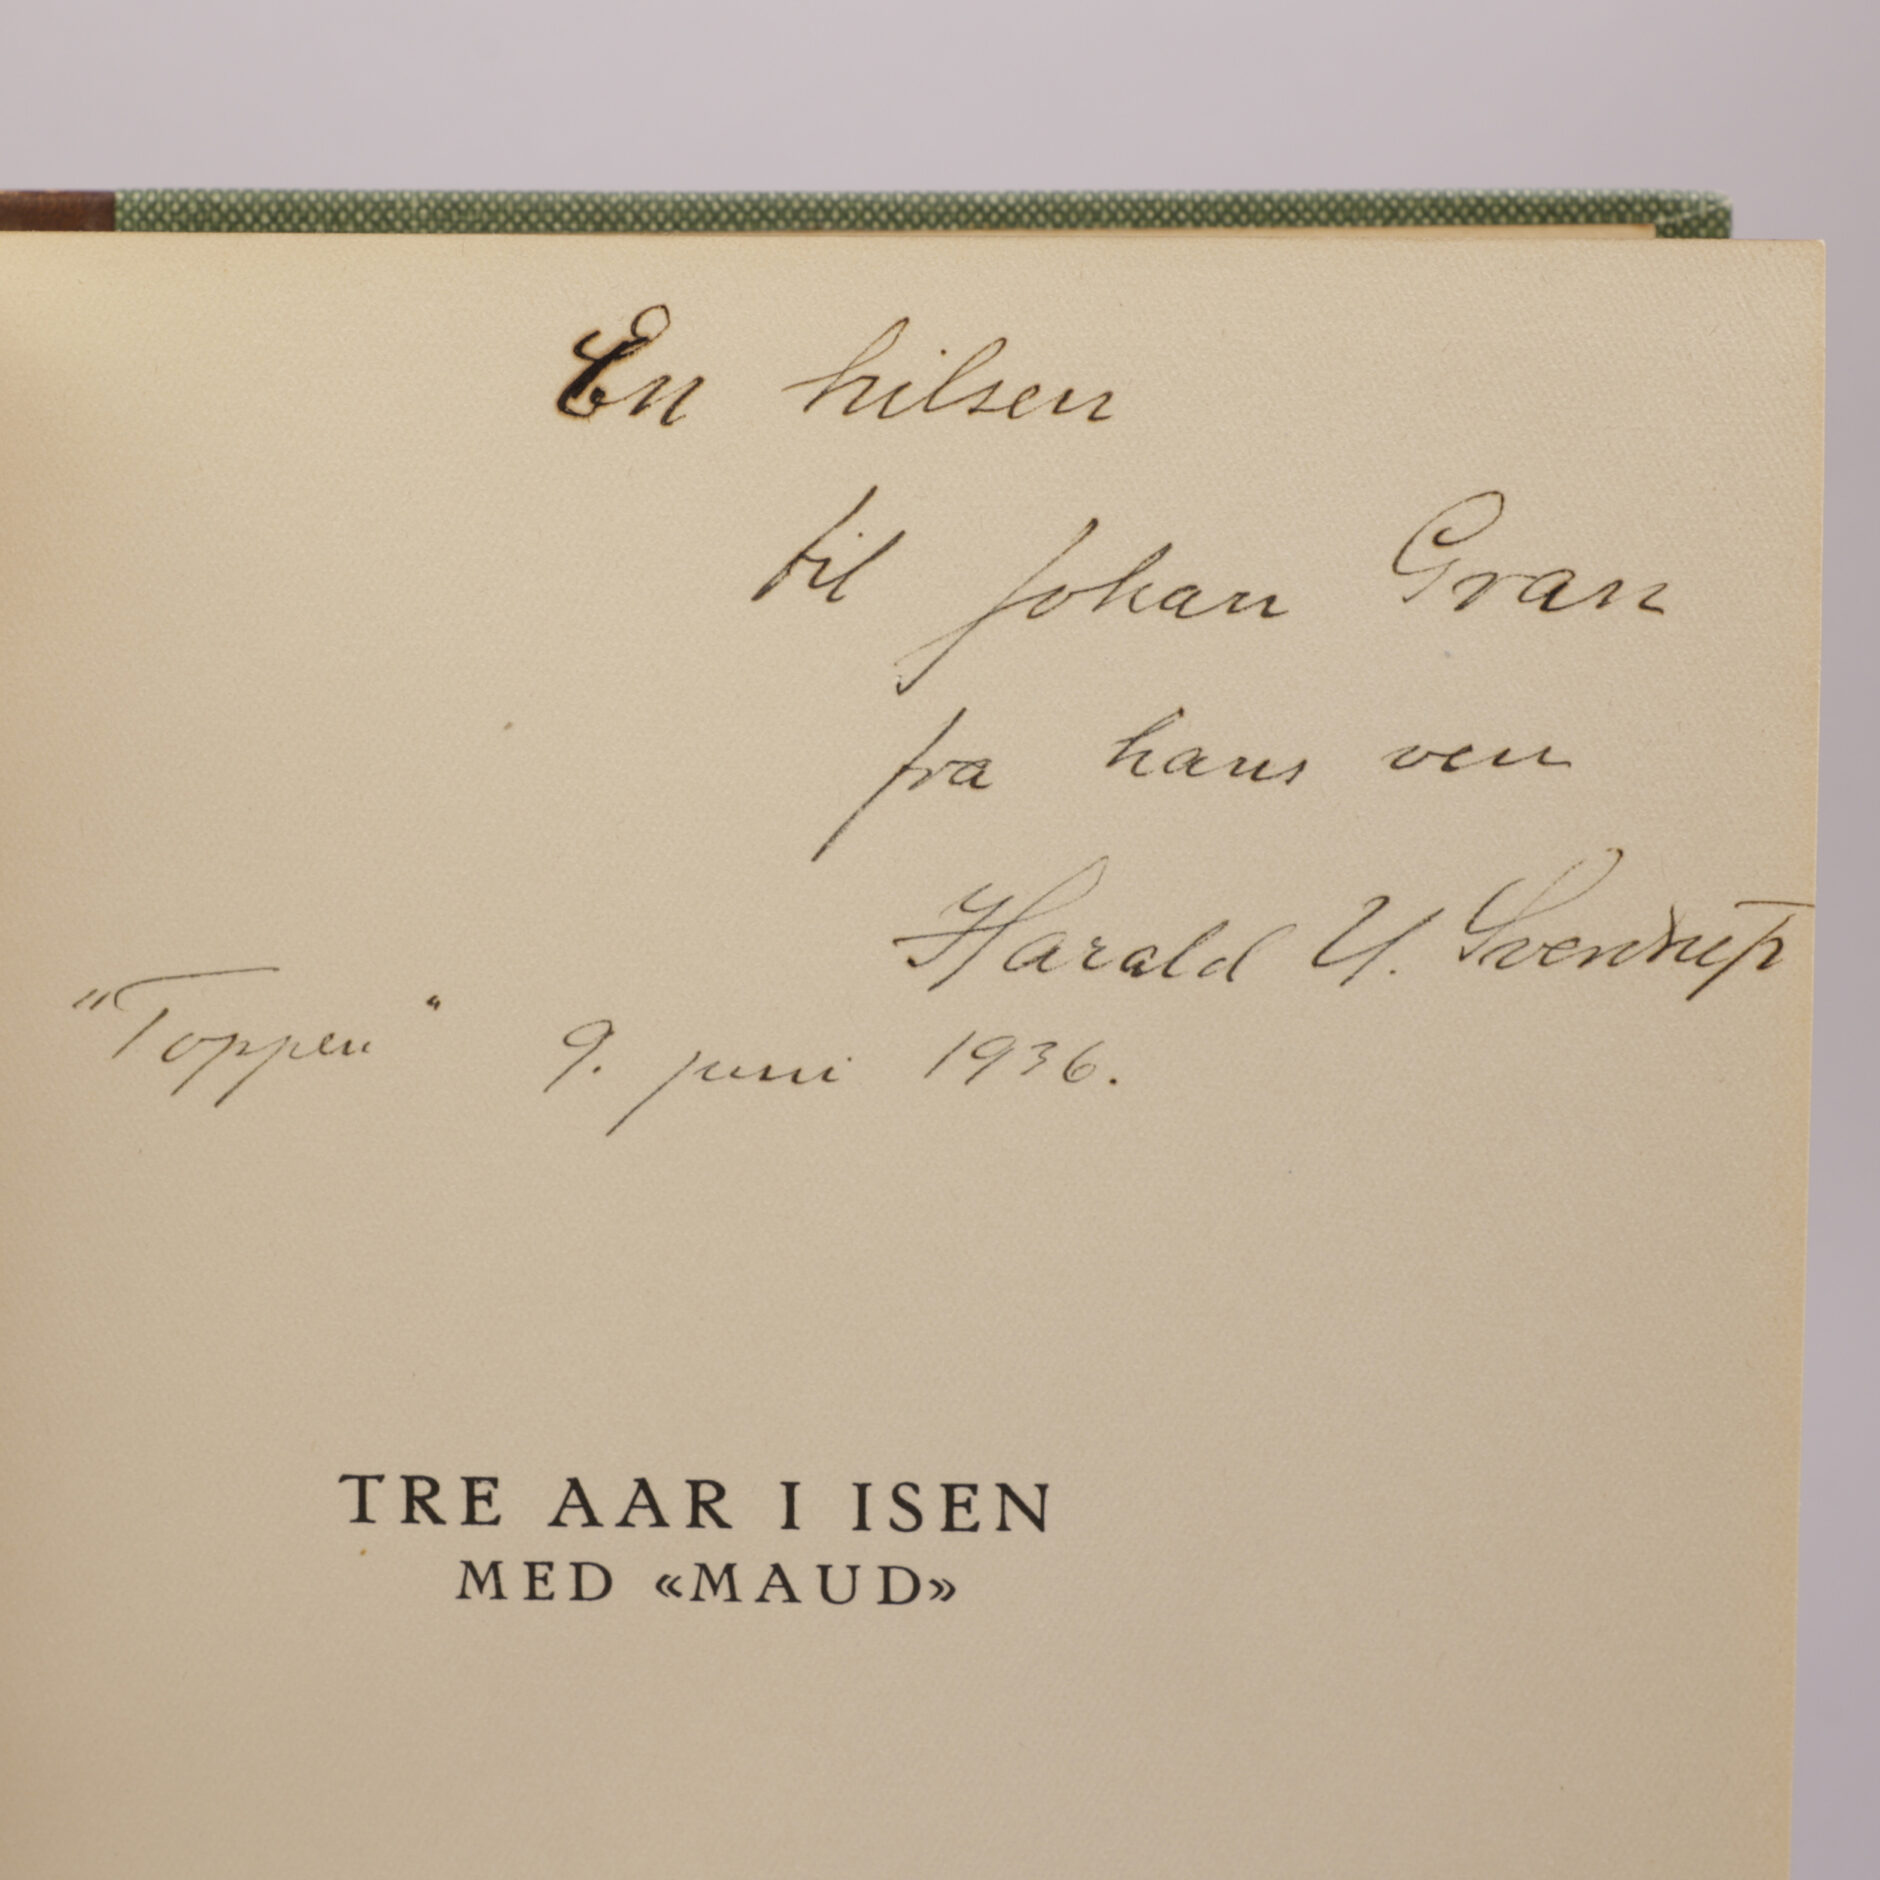 En hilsen
til Johan Gran
fra hans ven
Harald U. Sverdrup
"Toppen" 9. juni 1936.
TRE AAR I ISEN
MED «MAUD»